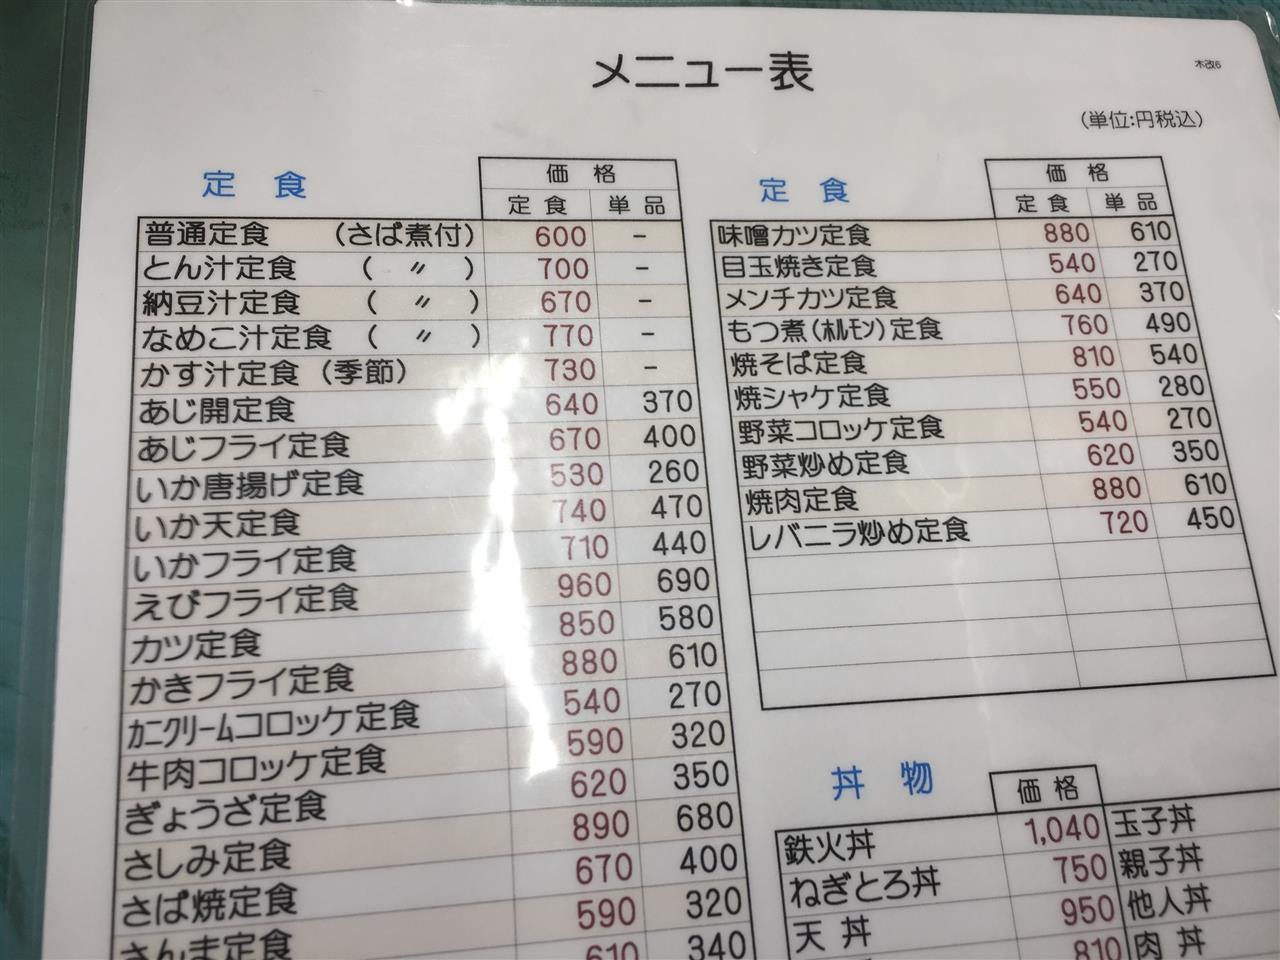 メニュー表
木改6
(単位:円税込)
定食 価格
定食 単品
普通定食 (さば煮付) 600 -
とん汁定食 ( 〃 ) 700 -
納豆汁定食 ( 〃 ) 670 -
なめこ汁定食 ( 〃 ) 770 -
かす汁定食 (季節) 730 -
あじ開定食 640 370
あじフライ定食 670 400
いか唐揚げ定食 530 260
いか天定食 740 470
いかフライ定食 710 440
えびフライ定食 960 690
カツ定食 850 580
かきフライ定食 880 610
ｶﾆｸﾘｰﾑコロッケ定食 540 270
牛肉コロッケ定食 590 320
ぎょうざ定食 620 350
さしみ定食 890 680
さば焼定食 670 400
さんま定食 590 320
610 340
定食 価格
定食 単品
味噌カツ定食 880 610
目玉焼き定食 540 270
メンチカツ定食 640 370
もつ煮(ﾎﾙﾓﾝ)定食 760 490
焼そば定食 810 540
焼シャケ定食 550 280
野菜コロッケ定食 540 270
野菜炒め定食 620 350
焼肉定食 880 610
レバニラ炒め定食 720 450
丼物 価格
鉄火丼 1,040 玉子丼
ねぎとろ丼 750 親子丼
天丼 950 他人丼
810 肉丼